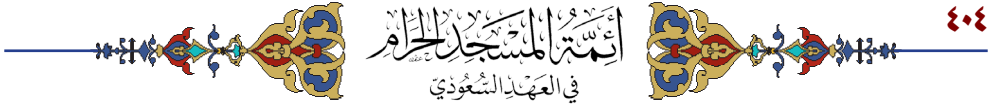 ٤٠٤
أَئِمَّةُ المَسْجِدِ الحَرَامِ
في العَهْدِ السُّعُودِيّ